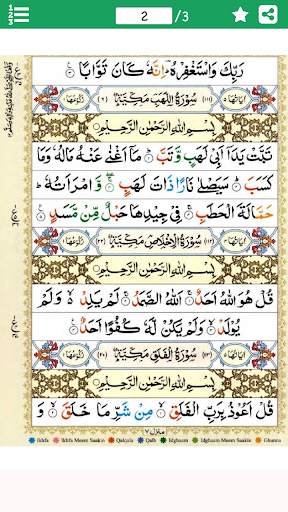 2 /3
رَبِّكَ وَاسْتَغْفِرْهُ ؕ اِنَّهٗ كَانَ تَوَّابًا
سُوْرَةُ اللَّهَبِ مَكِّيَّةٌ
بِسْمِ اللهِ الرَّحْمٰنِ الرَّحِيْمِ
تَبَّتْ يَدَاۤ اَبِيْ لَهَبٍ وَّتَبَّ ۞ مَاۤ اَغْنٰى عَنْهُ مَالُهٗ وَمَا
كَسَبَ ۞ سَيَصْلٰى نَارًا ذَاتَ لَهَبٍ ۞ وَّ امْرَاَتُهٗ ؕ
حَمَّالَةَ الْحَطَبِ ۞ فِيْ جِيْدِهَا حَبْلٌ مِّنْ مَّسَدٍ ۞
سُوْرَةُ الْاِخْلَاصِ مَكِّيَّةٌ
بِسْمِ اللهِ الرَّحْمٰنِ الرَّحِيْمِ
قُلْ هُوَ اللهُ اَحَدٌ ۞ اَللهُ الصَّمَدُ ۞ لَمْ يَلِدْ ۙ وَلَمْ
يُوْلَدْ ۞ وَلَمْ يَكُنْ لَّهٗ كُفُوًا اَحَدٌ ۞
سُوْرَةُ الْفَلَقِ مَكِّيَّةٌ
بِسْمِ اللهِ الرَّحْمٰنِ الرَّحِيْمِ
قُلْ اَعُوْذُ بِرَبِّ الْفَلَقِ ۞ مِنْ شَرِّ مَا خَلَقَ ۞ وَ
منزل ۷
Ikhfa Ikhfa Meem Saakin Qalqala Qalb Idghaam Idghaam Meem Saakin Ghunna